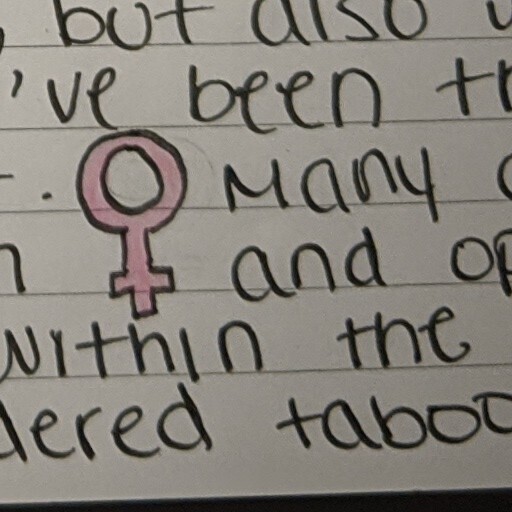 but also
've been
. Many
and
within the
dered taboo